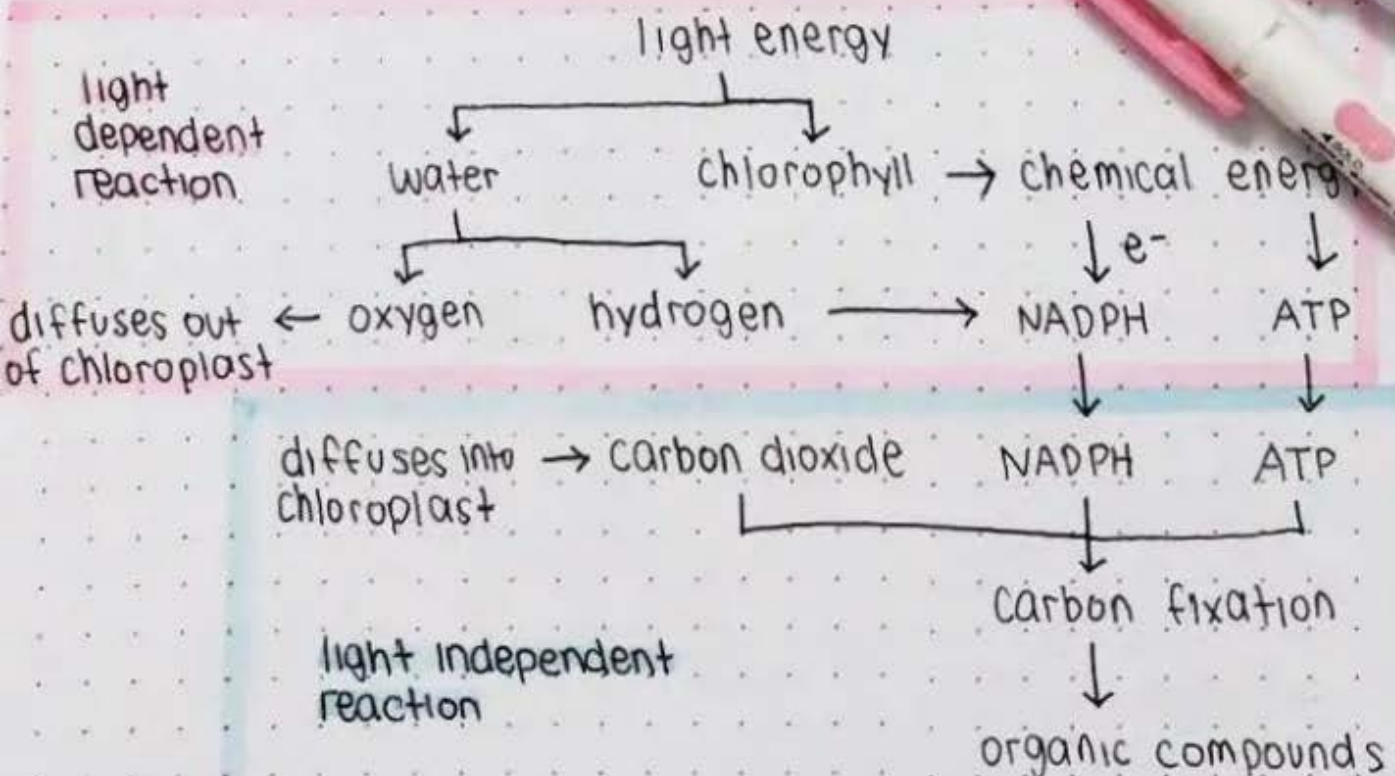 light energy
light
dependent
reaction
water
chlorophyll → chemical energy
e-
diffuses out ← oxygen
of chloroplast
hydrogen → NADPH
ATP
diffuses into → carbon dioxide
chloroplast
NADPH
ATP
carbon fixation
light independent
reaction
organic compounds